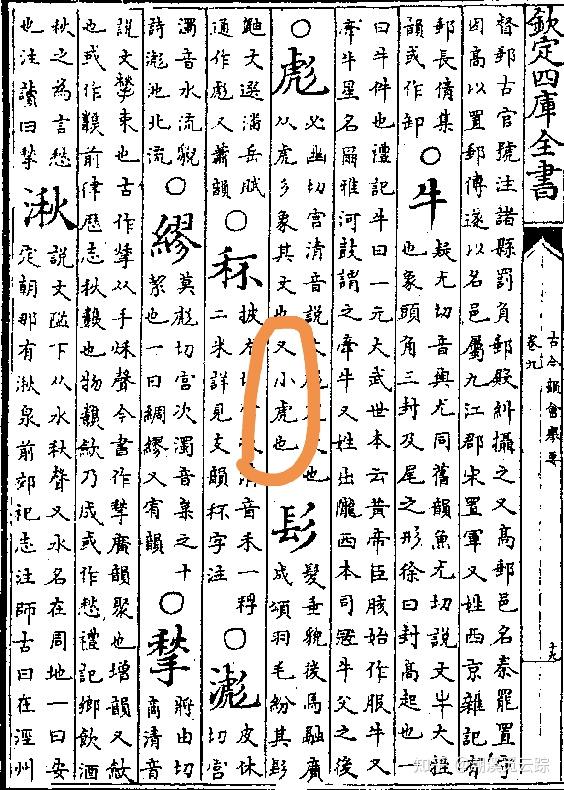 欽定四庫全書
古今韻會舉要
卷九
督郵古官號注諸縣罰負郵殿糾攝之又高郵邑名秦罷置
因高以置郵傳遂以名邑屬九江郡宋置軍又姓西京雜記有
郵長倩集
韻或作卸
○牛
疑尤切音與尤同舊韻魚尤切說文牛大牲
也象頭角三封及尾之形徐曰封高起也一
曰牛件也禮記牛曰一元大武世本云黃帝臣胲始作服牛又
牽牛星名爾雅河鼓謂之牽牛又姓出隴西本司寇牛父之後
○彪
必幽切宮清音說文虎也
从虎彡象其文也又小虎也
髟
髮垂貌後馬融廣
成頌羽毛紛其髟
鼬文選潘岳賦
通作彪又蕭韻
○秠
披尤切清音禾一稃
二米詳見支韻秠字注
○滮
皮休
切宮
濁音水流貌
詩滮池北流
○繆
莫彪切宮次濁音枲之十
絜也一曰綢繆又宥韻
○揫
將由切
商清音
說文揫束也古作揫从手秋聲今書作揫廣韻聚也增韻又斂
也或作䊵前律歷志秋䊵也物䊵斂乃成或作愁禮記鄉飲酒
秋之為言愁
也注讀曰揫
湫
說文隘下从水秋聲又水名在周地一曰安
定朝那有湫泉前郊祀志注師古曰在涇州